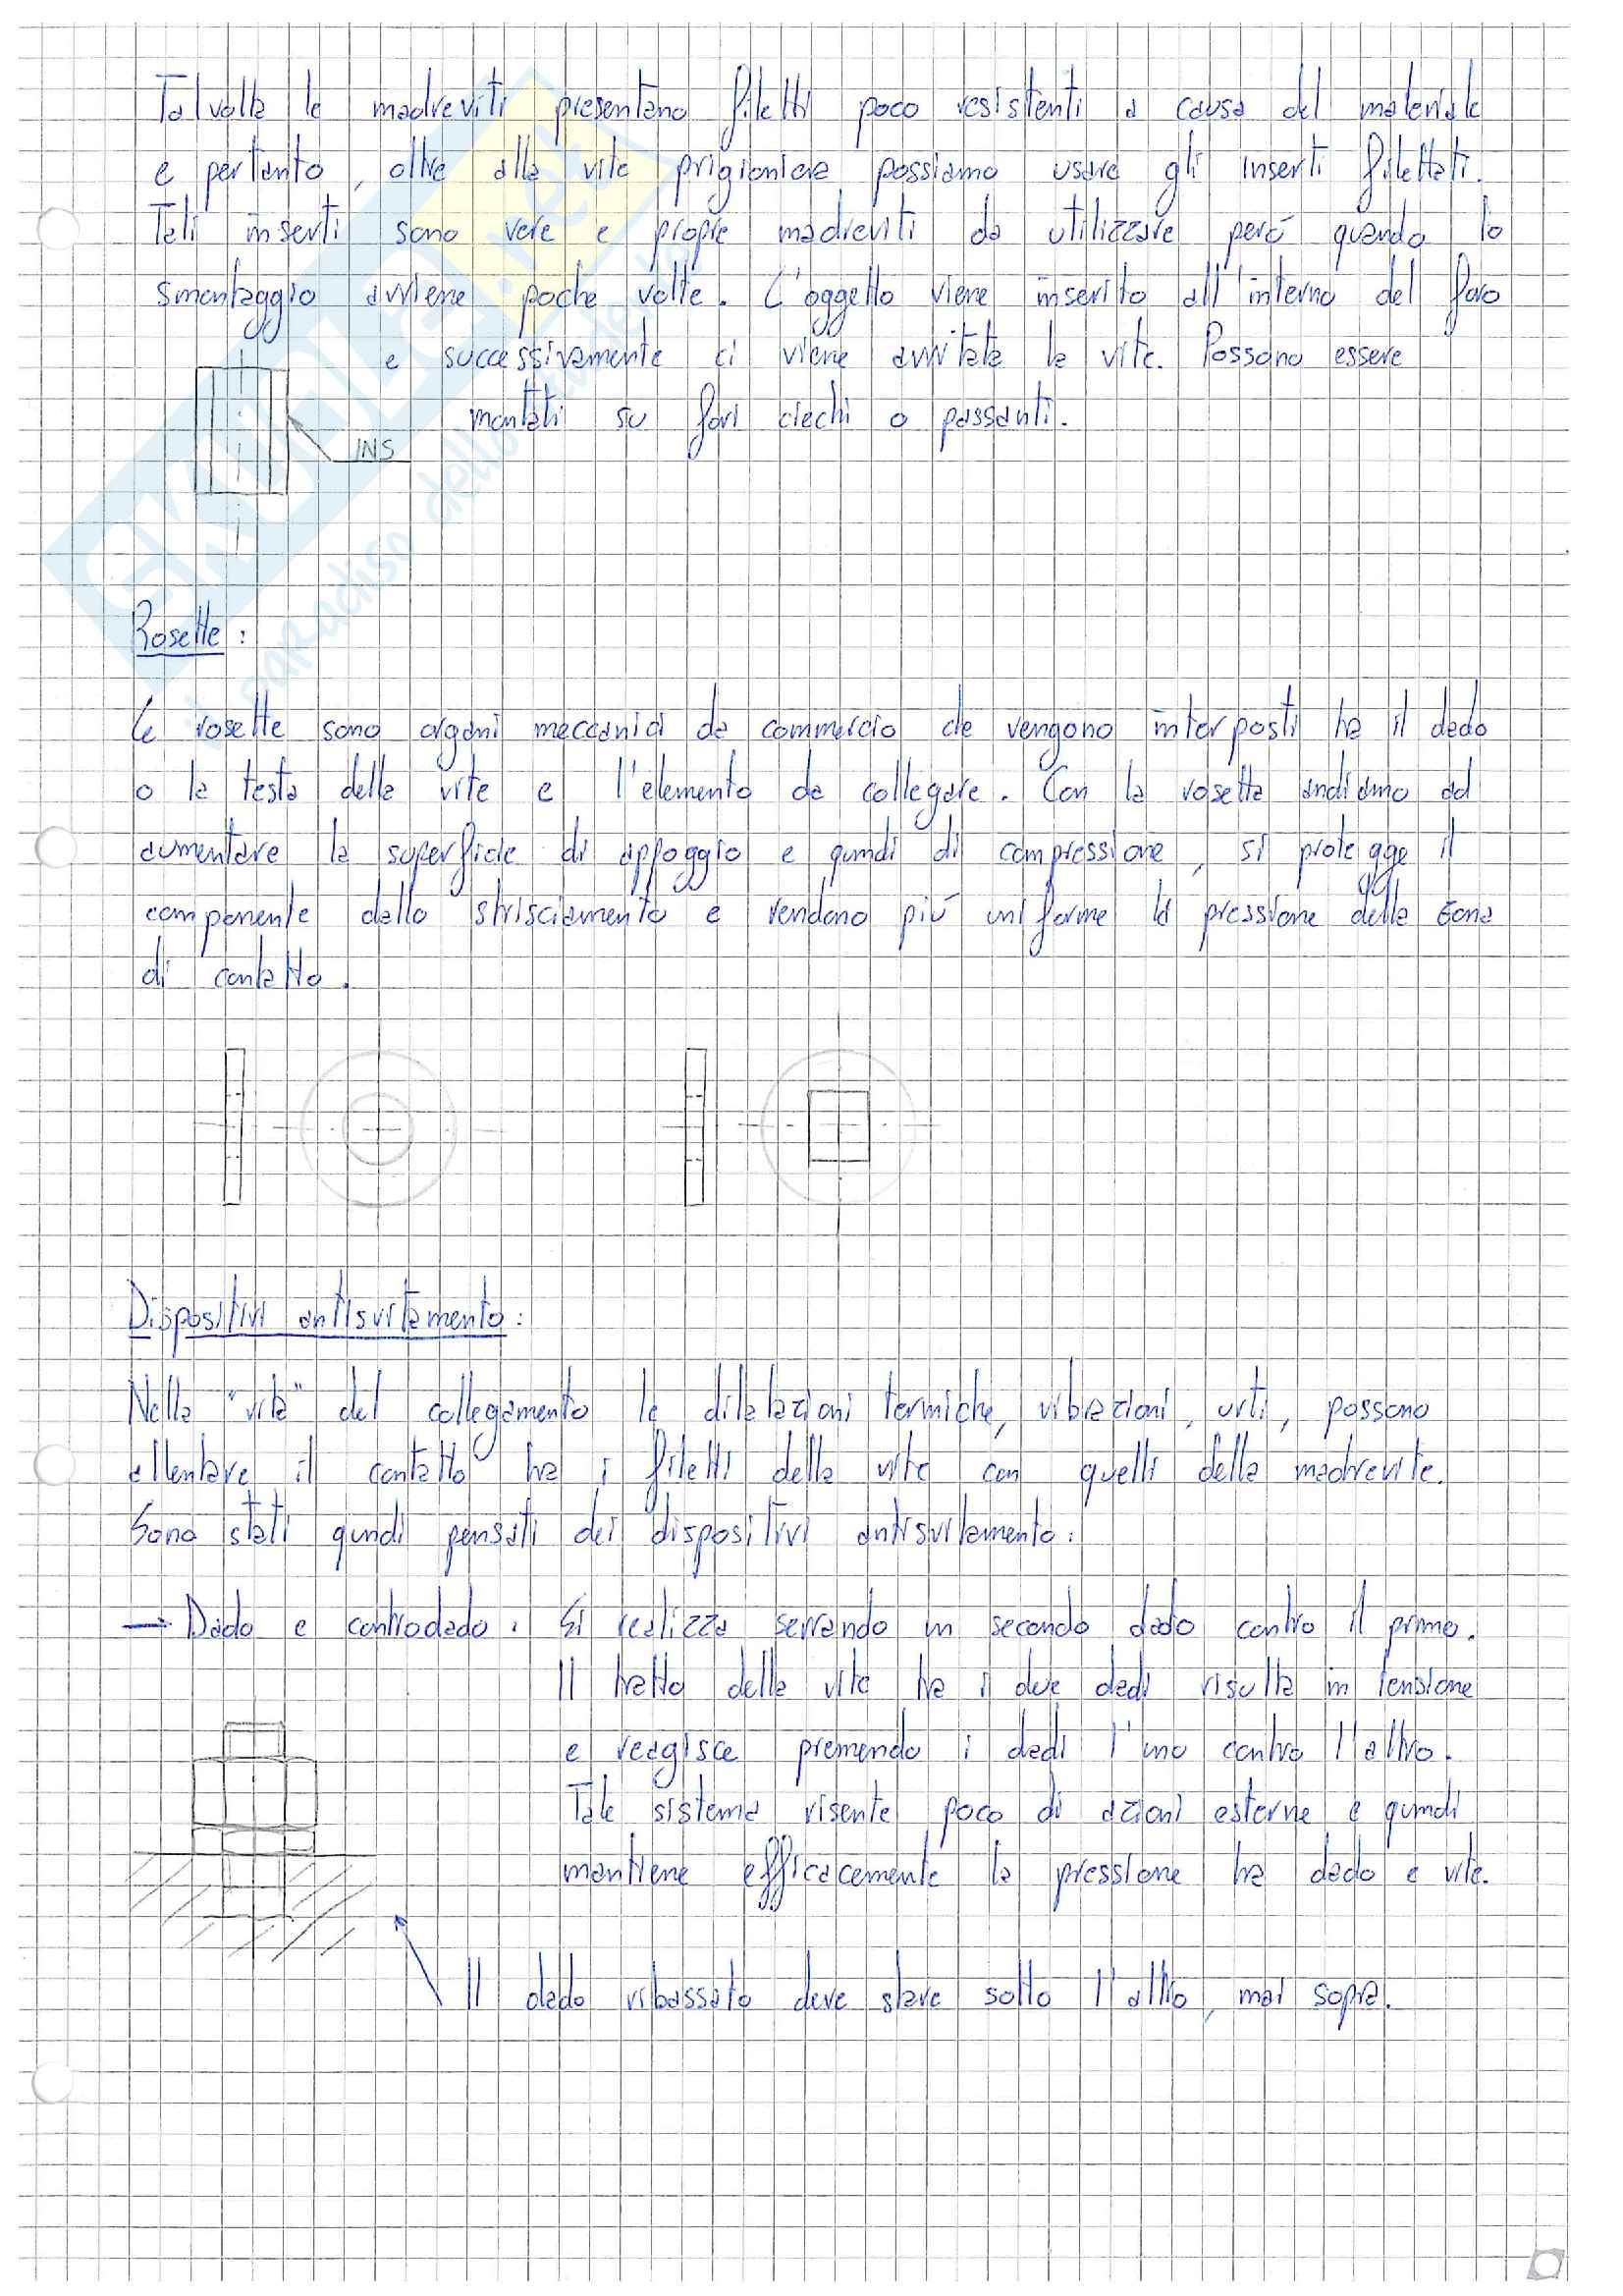 Talvolta le madreviti presentano filetti poco resistenti a causa del materiale
e pertanto, oltre alla vite prigioniera possiamo usare gli inserti filettati.
Tali inserti sono vere e proprie madreviti da utilizzare però quando lo
smontaggio avviene poche volte. L'oggetto viene inserito all'interno del foro
e successivamente ci viene avvitata la vite. Possono essere
montati su fori ciechi o passanti.
INS
Rosette:
Le rosette sono organi meccanici da commercio che vengono interposti tra il dado
o la testa della vite e l'elemento da collegare. Con la rosetta andiamo ad
aumentare la superficie di appoggio e quindi di compressione, si protegge il
componente dallo strisciamento e rendono più uniforme la pressione della zona
di contatto.
Dispositivi antisvitamento:
Nella "vita" del collegamento le dilatazioni termiche, vibrazioni, urti, possono
allentare il contatto tra i filetti della vite con quelli della madrevite.
Sono stati quindi pensati dei dispositivi antisvitamento:
→ Dado e controdado: Si realizza serrando un secondo dado contro il primo.
Il tratto della vite tra i due dadi risulta in tensione
e reagisce premendo i dadi l'uno contro l'altro.
Tale sistema risente poco di azioni esterne e quindi
mantiene efficacemente la pressione tra dado e vite.
Il dado ribassato deve stare sotto l'altro, mai sopra.